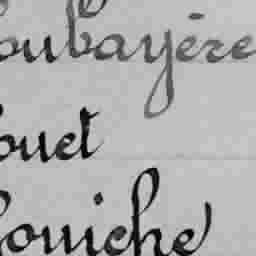 oubayère
ouet
ouiche